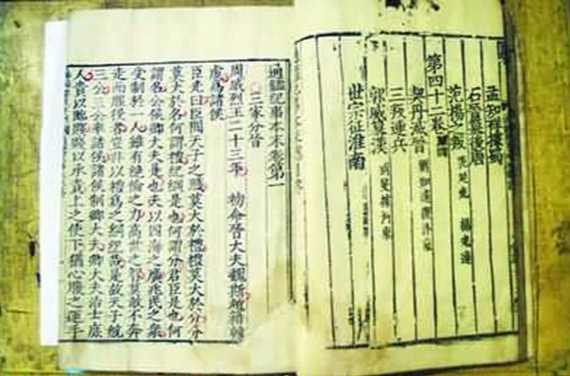 孟知祥據蜀
石晉篡後唐
范楊之叛 范延光 楊光遠
第四十二卷
契丹滅晉
三叛連兵
郭威篡漢 劉旻據河東
世宗征淮南
通鑑紀事本末卷第一
三家分晉
周威烈王二十三年 初命晉大夫魏斯趙籍韓
虔爲諸侯
臣光曰臣聞天子之職莫大於禮禮莫大於分分
莫大於名何謂禮紀綱是也何謂分君臣是也何
謂名公侯卿大夫是也夫以四海之廣兆民之衆
受制於一人雖有絕倫之力高世之智莫敢不奔
走而服役者豈非以禮爲之綱紀哉是故天子統
三公三公率諸侯諸侯制卿大夫卿大夫治士庶
人貴以臨賤賤以承貴上之使下猶心腹之運手